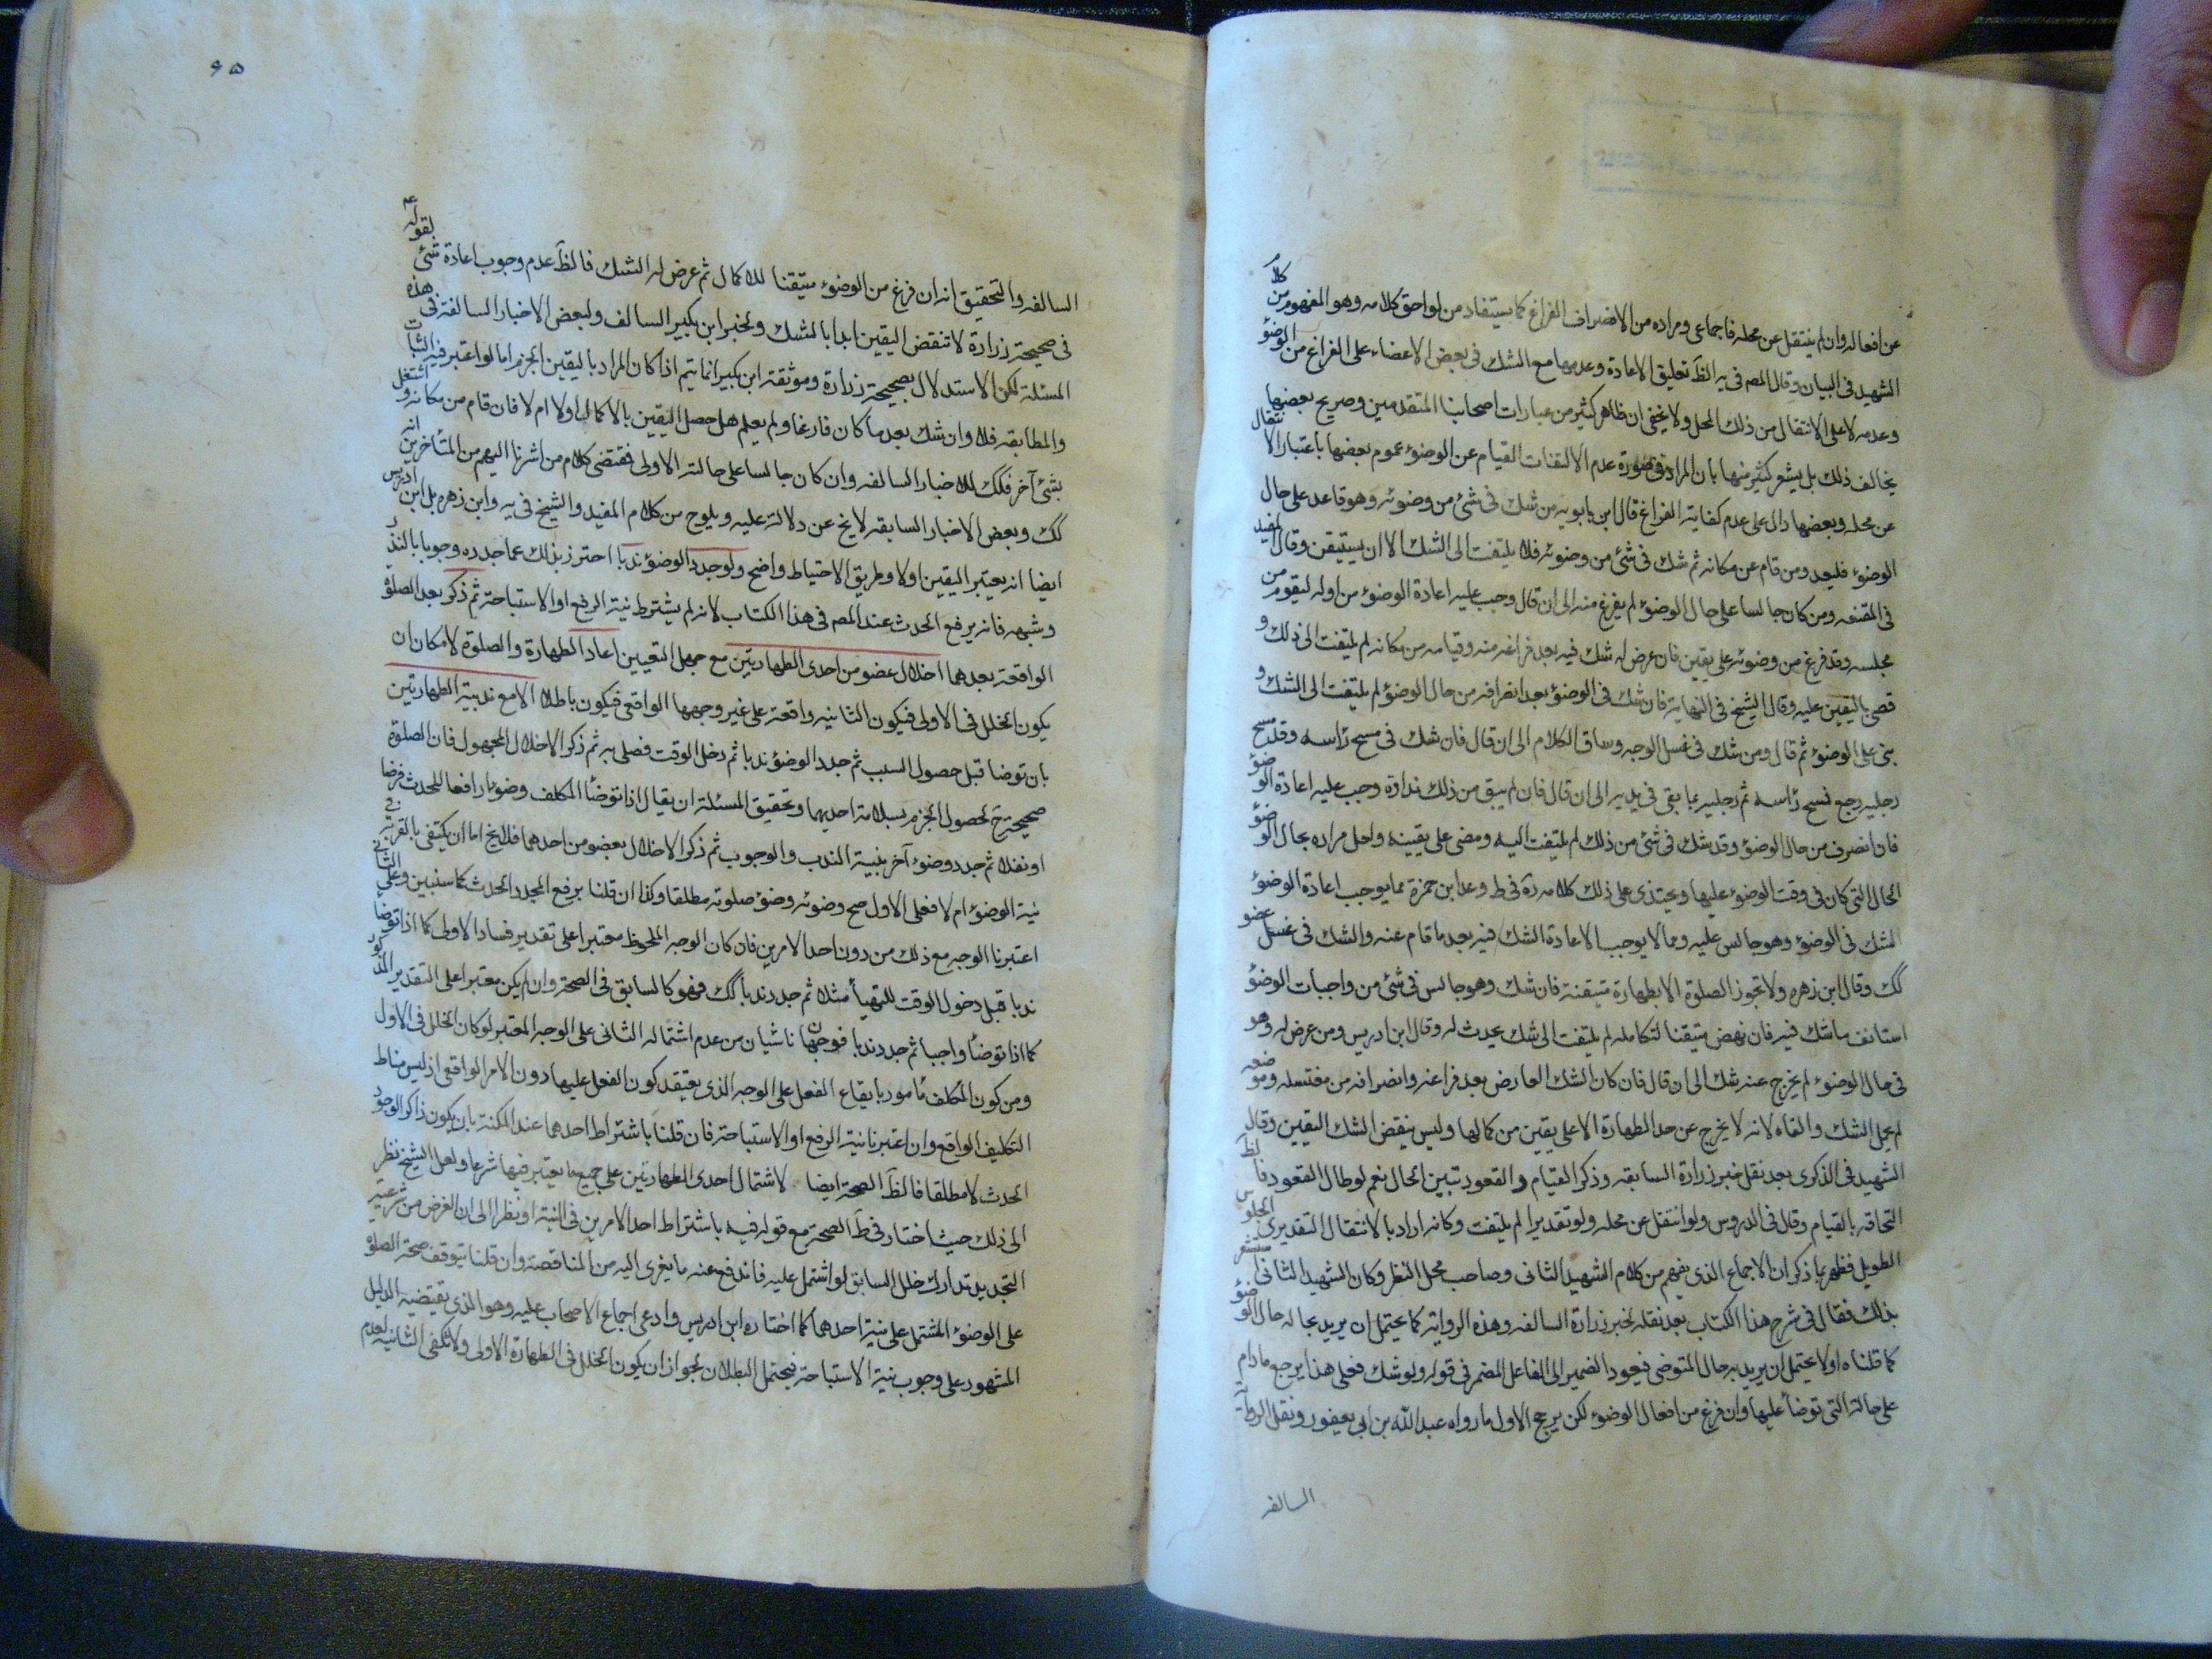 عن افعاله وان لم ينتقل عن محله فاجماعى ومراده من الانصراف الفراغ كما يستفاد من لواحق كلامه وهو المفهوم من كلام
الشهيد فى البيان وقال المصه فى يه الظَ تعليق الاعادة وعدمها مع الشك فى بعض الاعضاء على الفراغ من الوضؤ
وعدمه لا على الانتقال من ذلك المحل ولا يخفى ان ظاهر كثير من عبارات اصحابنا المتقدمين وصريح بعضها
يخالف ذلك بل يشعر كثير منها بان المراد فى صورة عدم الالتفات القيام عن الوضؤ عموم بعضها باعتبار الانتقال
عن محله وبعضها دال على عدم كفاية الفراغ قال ابن بابويه من شك فى شئ من وضوئه وهو قاعد على حال
الوضؤ فليعد ومن قام عن مكانه ثم شك فى شئ من وضوئه فلا يلتفت الى الشك الا ان يستيقن وقال المفيد
فى المقنعه ومن كان جالسا على حال الوضؤ لم يفرغ منه الى ان قال وجب عليه اعادة الوضؤ من اوله ليقوم من
مجلسه وقد فرغ من وضوئه على يقين فان عرض له شك فيه بعد فراغه منه وقيامه من مكانه لم يلتفت الى ذلك و
قضى باليقين عليه وقال الشيخ فى النهاية فان شك فى الوضؤ بعد انصرافه من حال الوضؤ لم يلتفت الى الشك و
بنى على الوضؤ ثم قال ومن شك فى غسل الوجه وساق الكلام الى ان قال فان شك فى مسح رأسه وقد مسح
رجليه رجع فمسح رأسه ثم رجليه بما بقى فى يديه الى ان قال فان لم يبق من ذلك نداوة وجب عليه اعادة الوضؤ
فان انصرف من حال الوضؤ وقد شك فى شئ من ذلك لم يلتفت اليه ومضى على يقينه ولعل مراده بحال الوضؤ
الحال التى كان فى وقت الوضؤ عليها ويحتذى على ذلك كلامه ره فى ط وعد ابن حمزة مما يوجب اعادة الوضؤ
الشك فى الوضؤ وهو جالس عليه ومما لا يوجب الاعادة الشك فيه بعد ما قام عنه والشك فى غسل عضو
كك وقال ابن زهره ولا تجوز الصلوة الا بطهارة متيقنة فان شك وهو جالس فى شئ من واجبات الوضؤ
استانف ما شك فيه فان نهض متيقنا لتكامله لم يلتفت الى شك يحدث له وقال ابن ادريس ومن عرض له وهو
فى حال الوضؤ لم يخرج عنه شك الى ان قال فان كان الشك العارض بعد فراغه وانصرافه من مغتسله وموضعه
لم يحل الشك والقاه لانه لا يخرج عن حد الطهارة الا على يقين من كمالها وليس ينقض الشك اليقين وقال
الشهيد فى الذكرى بعد نقل خبر زرارة السابقه وذكر القيام والقعود تبين الحال نعم لو طال القعود فالظَ
التحاقه بالقيام وقال فى الدروس ولو انتقل عن محله ولو تقديرا لم يلتفت وكانه اراد بالانتقال التقديرى الجلوس
الطويل فظهر بما ذكر ان الاجماع الذى يفهم من كلام الشهيد الثانى وصاحب محل النظر وكان الشهيد الثانى استشعر
بذلك فقال فى شرح هذا الكتاب بعد نقله لخبر زرارة السالفه وهذه الرواية كما يحتمل ان يريد بحاله حال الوضؤ
كما قلناه اولا يحتمل ان يريد به حال المتوضى فيعود الضمير الى الفاعل المضمر فى قوله ولو شك فعلى هذا يرجع ما دام
على حالة التى توضأ عليها وان فرغ من افعال الوضؤ لكن يرجح الاول ما رواه عبد الله بن ابى يعفور ونقل الرواية
السالفه
٩٥
السالفه والتحقيق انه ان فرغ من الوضؤ متيقنا للاكمال ثم عرض له الشك فالظَ عدم وجوب اعادة شئ لقوله عم
فى صحيحة زرارة لا تنقض اليقين ابدا بالشك ولخبر ابن بكير السالف ولبعض الاخبار السالفة فى هذه
المسئلة لكن الاستدلال بصحيحة زرارة وموثقة ابن بكير انما يتم اذا كان المراد باليقين الجزم اما لو اعتبر فيه الثبات
والمطابقه فلا وان شك بعد ما كان فارغا ولم يعلم هل حصل اليقين بالاكمال اولا ام لا فان قام من مكانه و اشتغل
بشئ آخر فكك للاخبار السالفه وان كان جالسا على حالته الاولى فمقتضى كلام من اشرنا اليهم من المتأخرين انه
كك وبعض الاخبار السابقه لا يخ عن دلالة عليه ويلوح من كلام المفيد والشيخ فى يه وابن زهره بل ابن ادريس
ايضا انه يعتبر اليقين اولا وطريق الاحتياط واضح ولو جدد الوضؤ ندبا احترز بذلك عما جدده وجوبا بالنذر
وشبهه فانه يرفع الحدث عند المصه فى هذا الكتاب لانه لم يشترط نية الرفع او الاستباحة ثم ذكر بعد الصلوة
الواقعة بعدهما اخلال عضو من احدى الطهارتين مع جهل التعيين اعاد الطهارة والصلوة لامكان ان
يكون الخلل فى الاولى فيكون الثانيه واقعة على غير وجهها الواقعى فيكون باطلا الا مع ندبية الطهارتين
بان توضا قبل حصول السبب ثم جدد الوضؤ ندبا ثم دخل الوقت فصلى به ثم ذكر الاخلال المجهول فان الصلوة
صحيحة ح لحصول الجزم بسلامة احديهما وتحقيق المسئلة ان يقال اذا توضأ المكلف وضؤا رافعا للحدث فرضا
او نفلا ثم جدد وضؤ آخر بنية الندب والوجوب ثم ذكر الاخلال بعضو من احدهما فلا يخ اما ان يكتفى بالقربة فى
نية الوضؤ ام لا فعلى الاول صح وضوئه وصلوته مطلقا وكذا ان قلنا برفع المجدد الحدث كما سنبين وعلى الثانى
اعتبرنا الوجه مع ذلك من دون احد الامرين فان كان الوجه الملحوظ معتبرا على تقدير فساد الاولى كما اذا توضا
ندبا قبل دخول الوقت للتهيأ مثلا ثم جدد ندبا كك فهو كالسابق فى الصحة وان لم يكن معتبرا على التقدير المذكور
كما اذا توضأ واجبا ثم جدد ندبا فوجهان ناشيان من عدم اشتماله الثانى على الوجه المعتبر لو كان الخلل فى الاول
ومن كون المكلف مأمورا بايقاع الفعل على الوجه الذى يعتقد كون الفعل عليها دون الامر الواقعى اذ ليس مناط
التكليف الواقع وان اعتبرنا نية الرفع او الاستباحة فان قلنا باشتراط احدهما عند المكنة بان يكون ذاكرا لوجود
الحدث لا مطلقا فالظَ الصحة ايضا لاشتمال احدى الطهارتين على جميع ما يعتبر فيها شرعا ولعل الشيخ نظر
الى ذلك حيث اختار فى ط الصحة مع قوله فيه باشتراط احد الامرين فى النية او نظرا الى ان الغرض من شرعية
التجديد تدارك خلل السابق لو اشتمل عليه فاندفع عنه ما يعزى اليه من المناقضة وان قلنا بتوقف صحة الصلوة
على الوضؤ المشتمل على نية احدهما كما اختاره ابن ادريس وادعى اجماع الاصحاب عليه وهو الذى يقتضيه الدليل
المشهور على وجوب نية الاستباحة فيحتمل البطلان لجواز ان يكون الخلل فى الطهارة الاولى ولا تكفى الثانيه لعدم